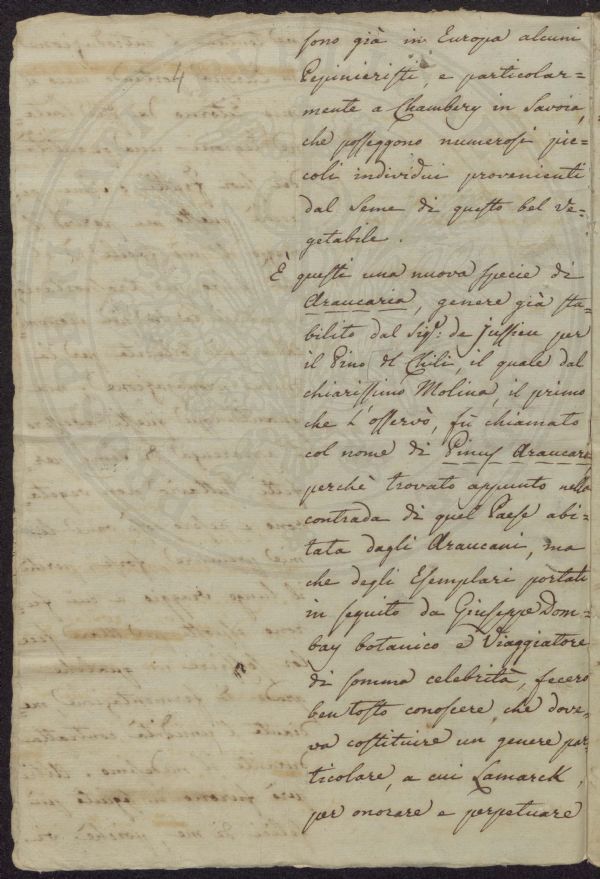 4
sono già in Europa alcuni
Pepinieristi, e particolar=
mente a Chambery in Savoia,
che posseggono numerosi pic=
coli individui provenienti
dal seme di questo bel ve=
getabile.
È questi una nuova specie di
Araucaria, genere già sta=
bilito dal Sig.r de Jussieu per
il Pino del Chili, il quale dal
chiarissimo Molina, il primo
che l'osservò, fù chiamato
col nome di Pinus Araucaria
perchè trovato appunto nella
contrada di quel Paese abi=
tata dagli Araucani, ma
che degli Esemplari portati
in seguito da Giuseppe Dom=
bay botanico e Viaggiatore
di somma celebrità, fecero
ben tosto conoscere, che dove=
va costituire un genere par=
ticolare, a cui Lamarck,
per onorare e perpetuare